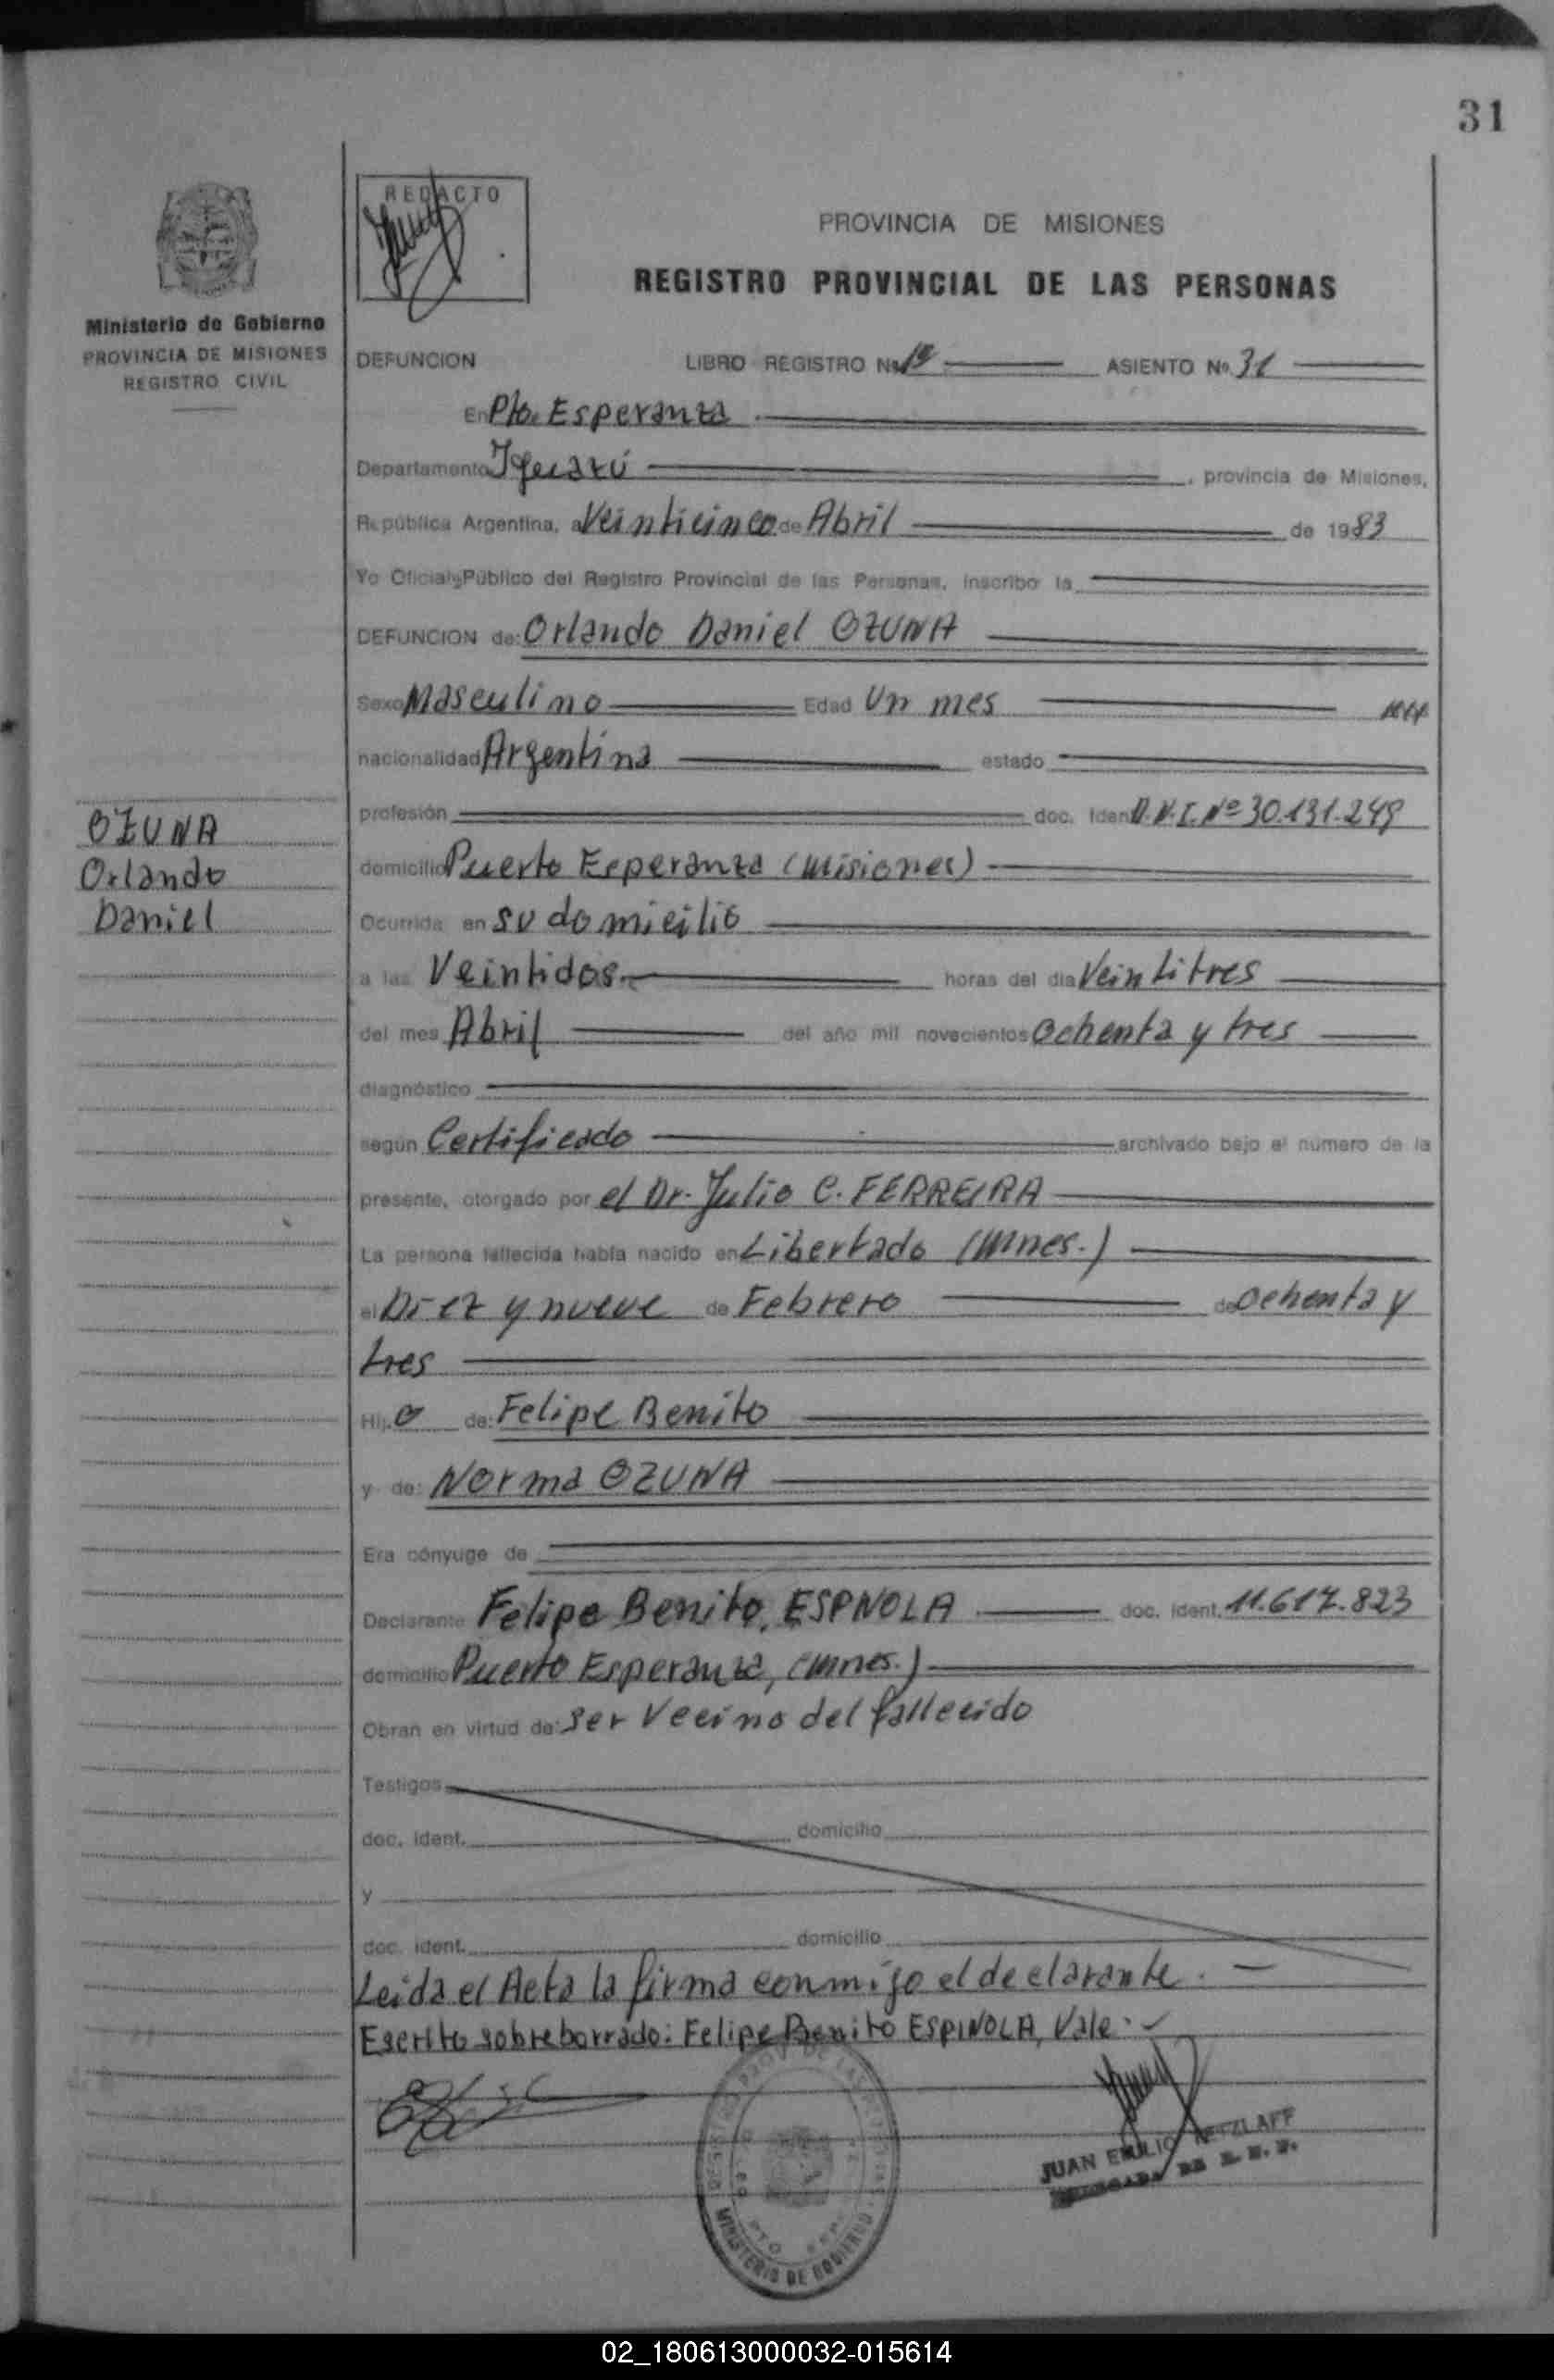 31
REDACTO
PROVINCIA DE MISIONES
REGISTRO PROVINCIAL DE LAS PERSONAS
Ministerio de Gobierno
PROVINCIA DE MISIONES
REGISTRO CIVIL
DEFUNCION LIBRO REGISTRO No ASIENTO No. 31
En Pto. Esperanza
Departamento Iguazú, provincia de Misiones,
República Argentina, a Veinticinco de Abril de 1983
Yo Oficial Público del Registro Provincial de las Personas, inscribo la
DEFUNCION de: Orlando Daniel OZUNA
Sexo Masculino Edad Un mes
nacionalidad Argentina estado
profesión doc. Iden D.N.I. Nº 30.131.249
OZUNA
Orlando
Daniel
domicilio Puerto Esperanza (Misiones)
Ocurrida en su domicilio
a las Veintidos horas del dia Veintitres
del mes Abril del año mil novecientos Ochenta y tres
diagnóstico
según Certificado archivado bajo el número de la
presente, otorgado por el Dr. Julio C. FERREIRA
La persona fallecida había nacido en Libertado (Mnes.)
el Diez y nueve de Febrero de Ochenta y
tres
Hij o de: Felipe Benito
y de: Norma OZUNA
Era cónyuge de
Declarante Felipe Benito, ESPNOLA doc. ident. 11.617.823
domicilio Puerto Esperanza, (Mnes.)
Obran en virtud de: Ser Vecino del fallecido
Testigos
doc. ident. domicilio
y
doc. ident. domicilio
Leida el Acta la firma conmigo el declarante.
Escrito sobreborrado: Felipe Benito ESPINOLA, Vale.
MINISTERIO DE GOBIERNO
JUAN EMILIO RETZLAFF
02_180613000032-015614